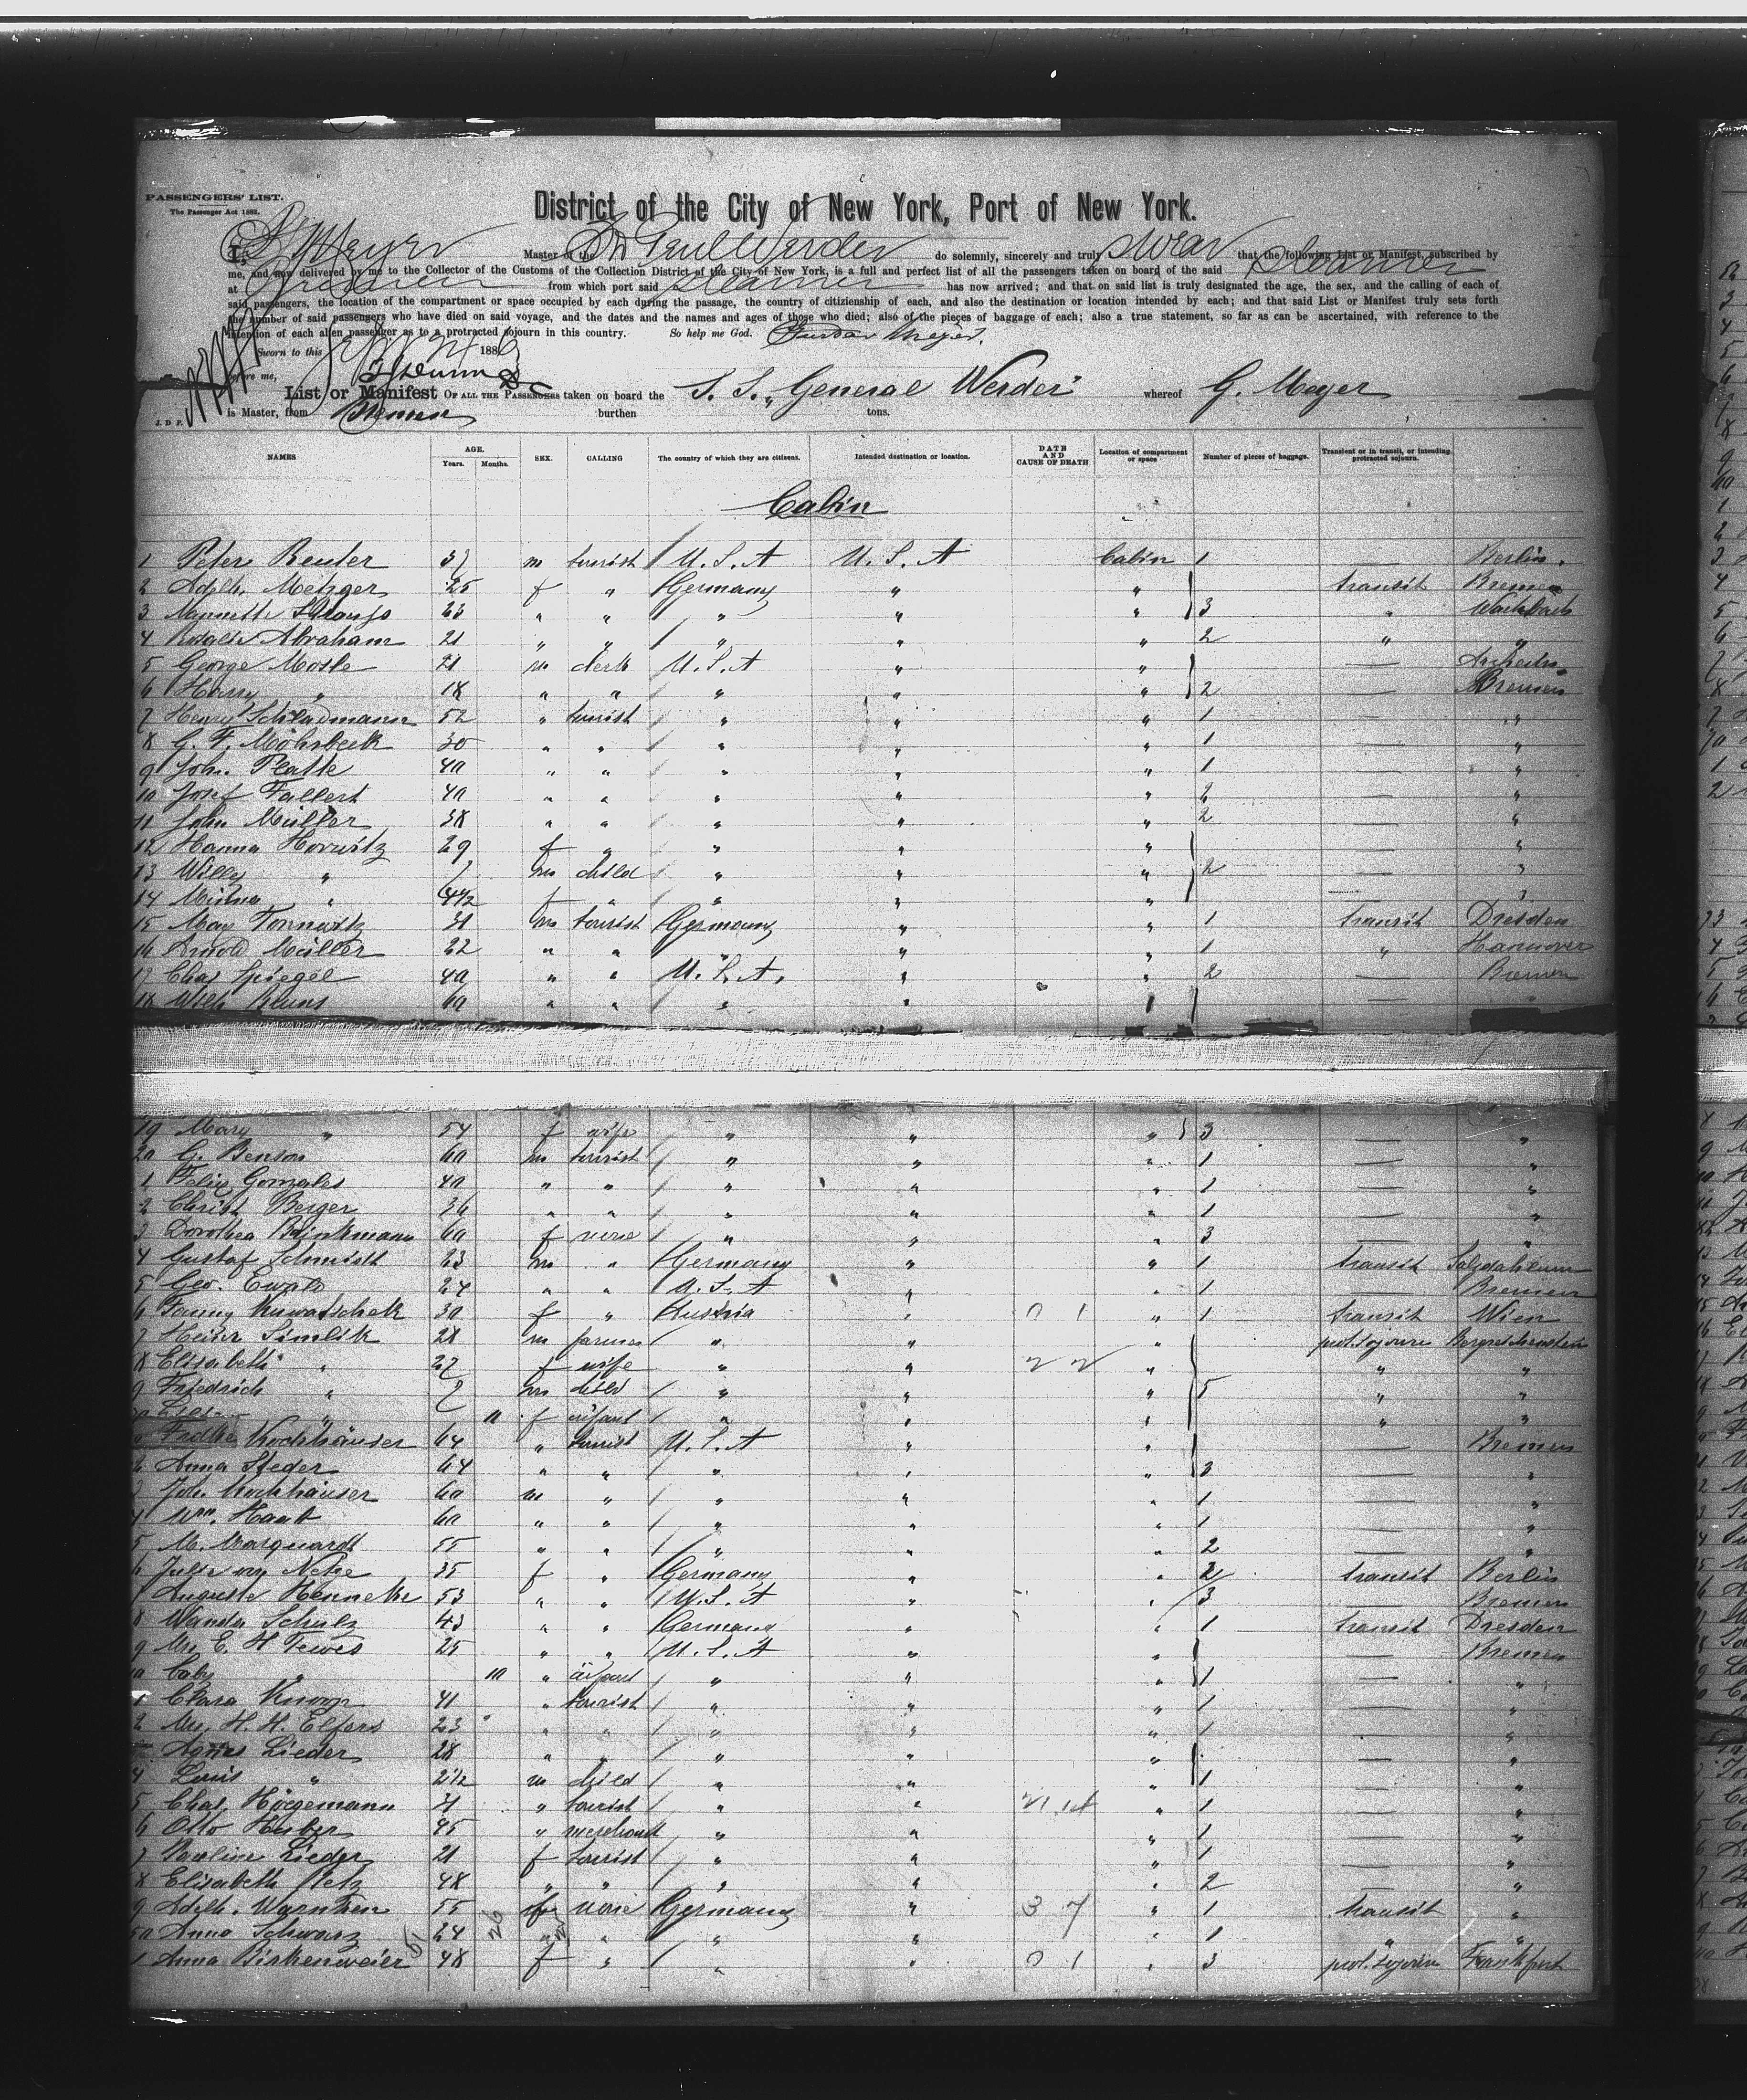 PASSENGERS' LIST.
The Passenger Act 1882.
District of the City of New York, Port of New York.
I, G Meyer Master of the SS Genl Werder do solemnly, sincerely and truly swear that the following List or Manifest, subscribed by
me, and now delivered by me to the Collector of the Customs of the Collection District of the City of New York, is a full and perfect list of all the passengers taken on board of the said Steamer
at Bremen from which port said Steamer has now arrived; and that on said list is truly designated the age, the sex, and the calling of each of
said passengers, the location of the compartment or space occupied by each during the passage, the country of citizenship of each, and also the destination or location intended by each; and that said List or Manifest truly sets forth
the number of said passengers who have died on said voyage, and the dates and the names and ages of those who died; also of the pieces of baggage of each; also a true statement, so far as can be ascertained, with reference to the
intention of each alien passenger as to a protracted sojourn in this country. So help me God. Gustav Meyer.
Sworn to this 1886
before me,
List or Manifest OF ALL THE PASSENGERS taken on board the S. S. „General Werder" whereof G. Meyer
J. D. P. is Master, from Bremen burthen tons.
NAMES AGE. Years. Months. SEX. CALLING The country of which they are citizens. Intended destination or location. DATE AND CAUSE OF DEATH Location of compartment or space Number of pieces of baggage. Transient or in transit, or intending protracted sojourn.
Cabin
1 Peter Reuter 37 m tourist U. S. A U. S. A Cabin 1 — Berlin
2 Adelh. Metzger 25 f " Germany " " transit Bremen
3 Nannette Strauss 23 " " " " " 3 "
4 Rosalie Abraham 21 " " " " " 2 " "
5 George Mosle 21 m clerk U. S. A " " —
6 Harry " 18 " " " " " 2 — Bremen
7 Henry Schladmann 52 " tourist " " " 1 — "
8 G. F. Möhrbeck 30 " " " " " 1 — "
9 John Platte 40 " " " " " 1 — "
10 Josef Fallert 40 " " " " " 2 — "
11 John Müller 38 " " " " " 2 — "
12 Hanna Horwitz 29 f " " " " — "
13 Willy " 7 m child " " " 2 — "
14 " 4 1/2 f " " " " — "
15 Max Tonnwitz 31 m tourist Germany " " 1 transit Dresden
16 Arnold Müller 22 " " " " " 1 " Hannover
17 Chas Spiegel 40 " " U. S. A. " " 2 — Bremen
18 Wilh Bruns 60 " " " " " — "
19 Mary " 54 f wife " " " 3 — "
20 G. Benson 60 m tourist " " " 1 — "
1 Felix Gonzales 40 " " " " " 1 — "
2 Christ Berger 36 " " " " " 1 — "
3 Dorothea Brinkmann 60 f none " " " 3 — "
4 Gustaf Schmidt 23 m " Germany " " 1 transit Salzdahlum
5 Geo. Ewald 24 " " U. S. A " " 1 — Bremen
6 Fanny Kuwatschek 30 f " Austria " 0 1 " 1 transit Wien
7 Heinr Simlik 28 m farmer " " " prot. sojourn
8 Elisabeth " 27 f wife " " " " "
9 Friedrich " 2 m child " " " 5 " "
" 11 f infant " " " " "
Fredke Kochhäuser 64 " tourist U. S. A " " — Bremen
2 Anna Steder 64 " " " " " 3 — "
3 Joh. Kochhäuser 60 m " " " " 1 — "
4 Wm. Haak 60 " " " " " 1 — "
5 M. Marquardt 55 " " " " " 2 — "
6 Julie Netze 35 f " Germany " " 2 transit Berlin
7 Auguste Henneke 53 " " U. S. A " " 3 — Bremen
8 Wanda Schulz 43 " " Germany " " 1 transit Dresden
9 Mrs E. H Tewes 25 " " U. S. A " " — Bremen
40 baby " 10 " infant " " " 1 — "
1 Clara Knoop 41 " tourist " " " 1 — "
2 Mrs. H. H. Elfers 23 " " " " " 1 — "
3 Agnes Lieder 28 " " " " " — "
4 Louis " 2 1/2 m child " " " 1 — "
5 Chas. Högemann 31 " tourist " " " 1 — "
6 Otto Huber 45 " merchant " " " 1 — "
7 Pauline Lieder 21 f tourist " " " 1 — "
8 Elisabeth Metz 48 " " " " " 2 — "
9 Adelh. Warnken 55 f none Germany " 3 7 " 1 transit "
50 Anna Schwarz 24 " " " " " 1 " "
1 Anna Birkenweier 48 f " " " 0 1 " 3 prot. sojourn Frankfurt